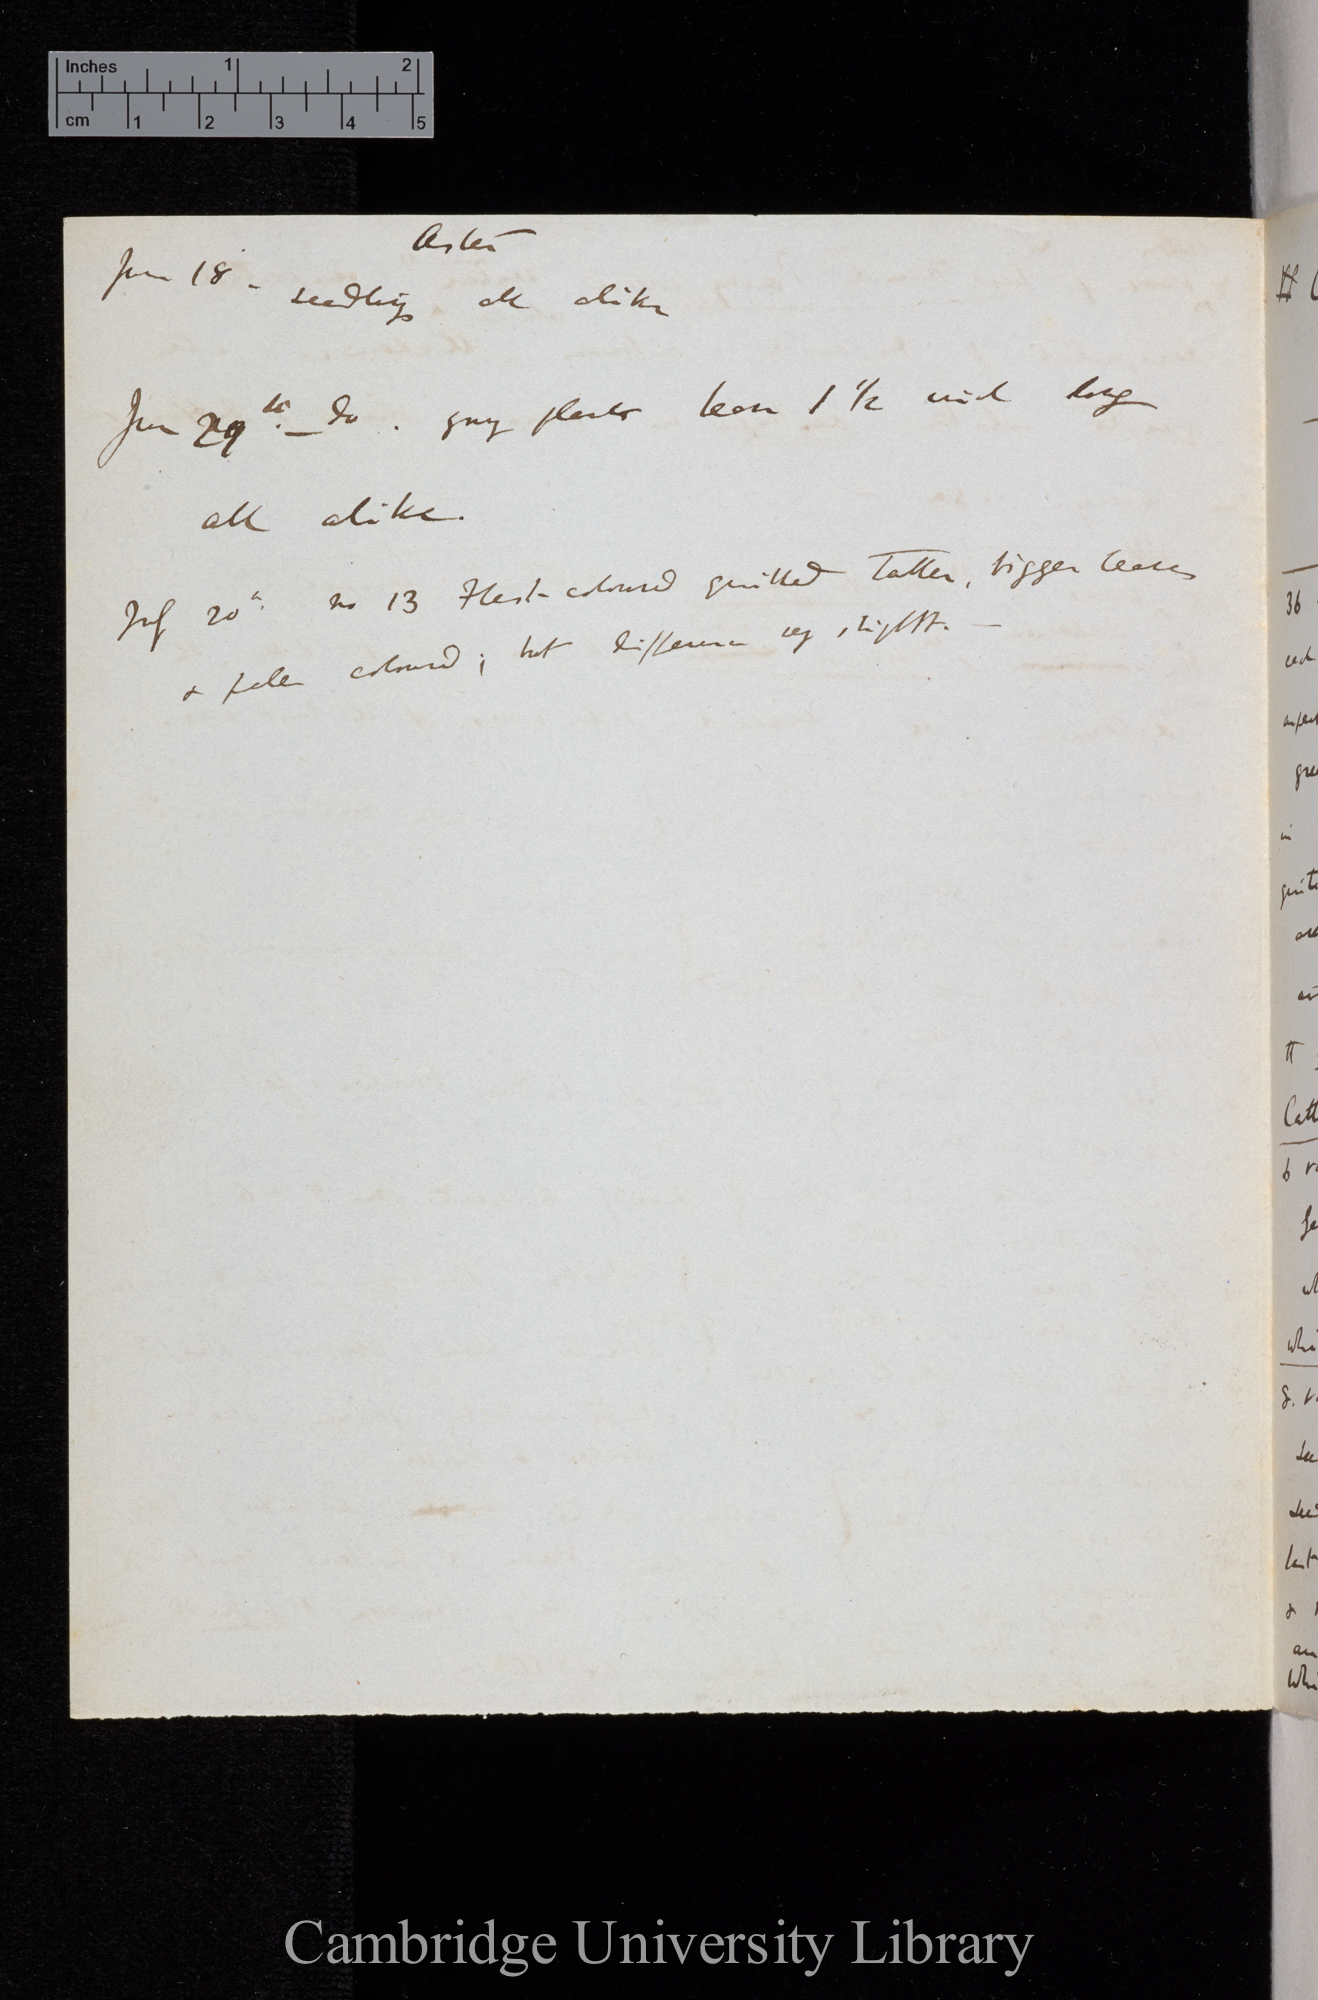 Inches 1 2
cm 1 2 3 4 5
Aster
June 18 - seedlings all alike
June 29th. — Do. young plants leaves 1 1/2 inch long
all alike.
July 20th. no 13 Flesh-coloured quilled taller, bigger leaves
& paler coloured; but difference very slight. —
36
in
Cambridge University Library